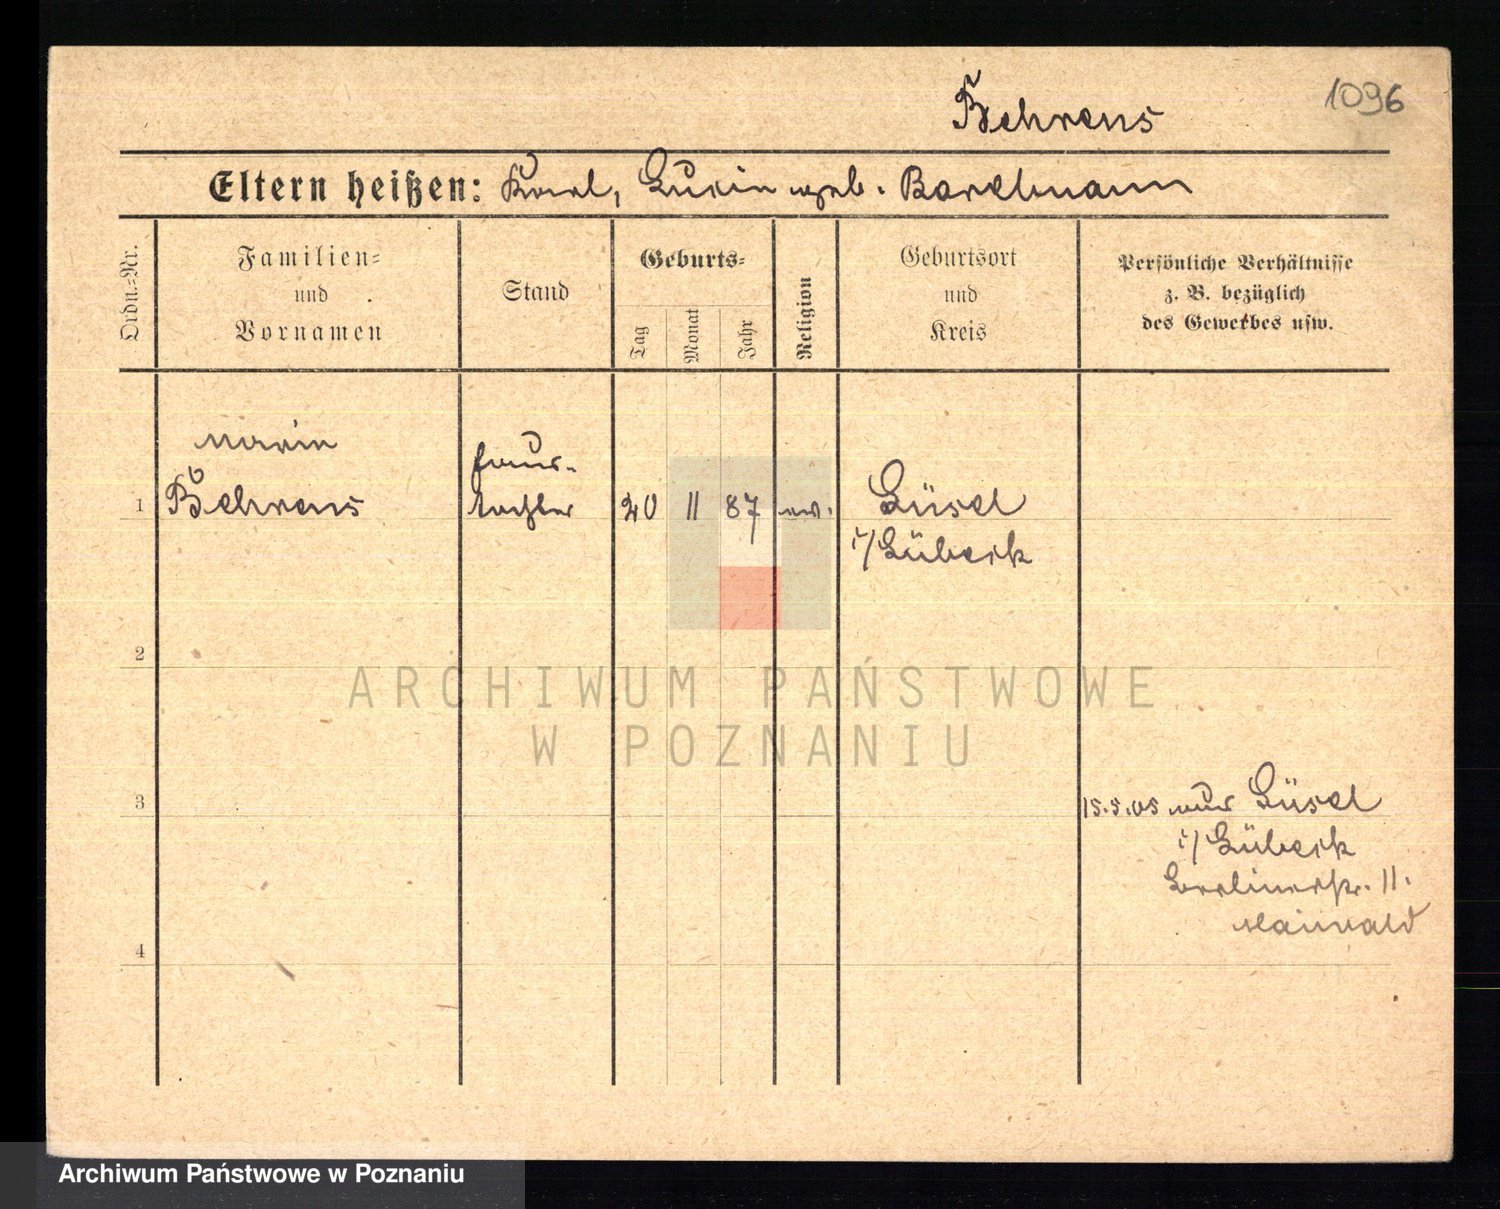 1096
Behrens
Eltern heißen: Karl, Lucie geb. Bardmann
Ordn.-Nr.
Familien-
und
Vornamen
Stand
Geburts-
Tag
Monat
Jahr
Religion
Geburtsort
und
Kreis
Persönliche Verhältnisse
z. B. bezüglich
des Gewerbes usw.
Marie
Behrens
Haus-
tochter
1
20 11 87 ev.
Lüsel
i/Lübeck
2
ARCHIWUM PAŃSTWOWE
W POZNANIU
3
15.5.05 aus Lüsel
i/Lübeck
Berlinerstr. 11.
Maiwald
4
Archiwum Państwowe w Poznaniu